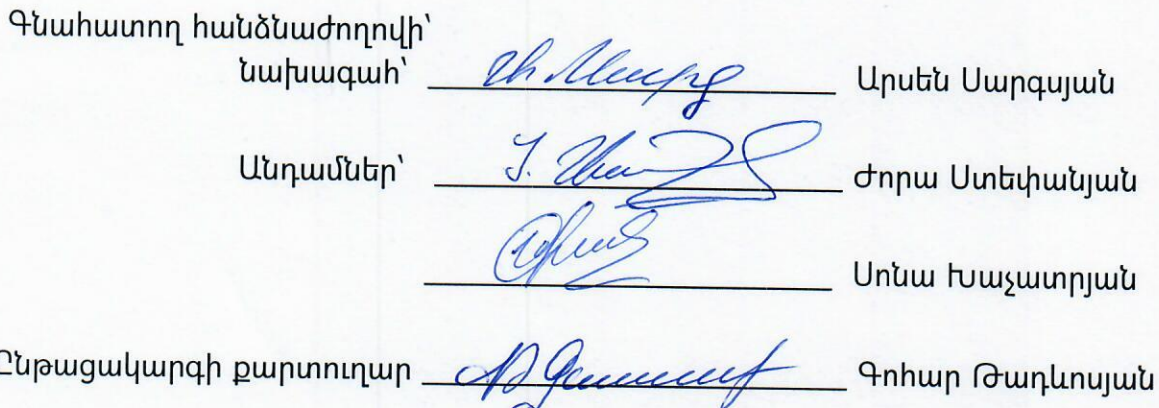 Գնահատող հանձնաժողովի՝
նախագահ՝ Արսեն Սարգսյան
Անդամներ՝ Ժորա Ստեփանյան
Սոնա Խաչատրյան
Ընթացակարգի քարտուղար Գոհար Թադևոսյան